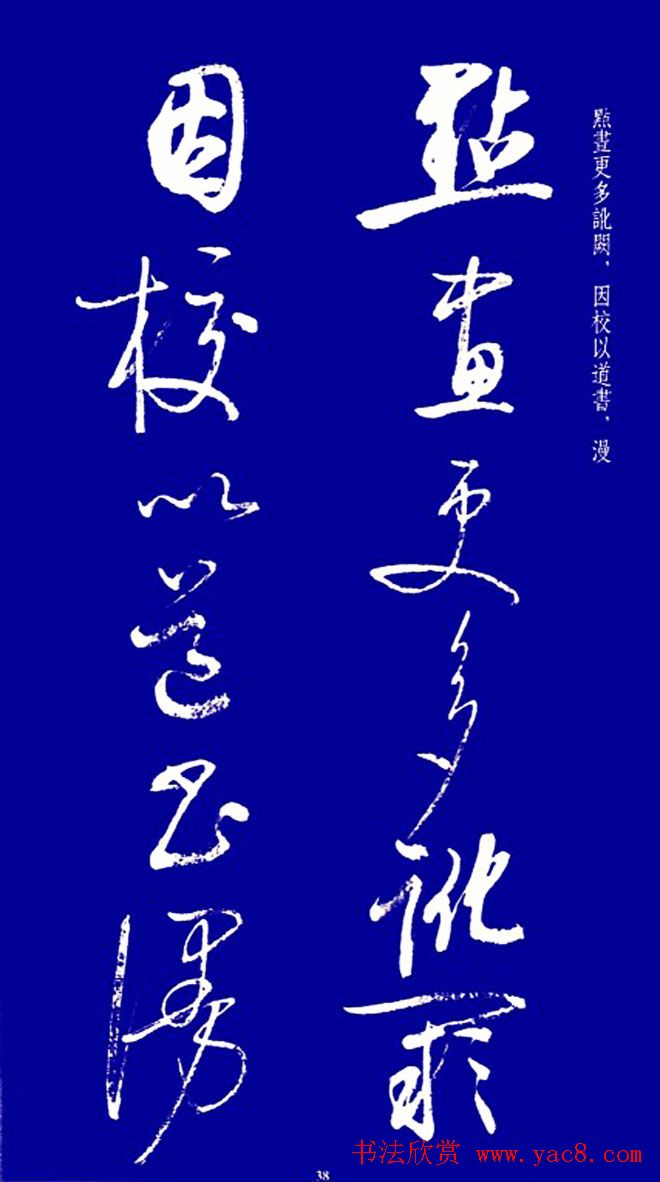 點畫更多訛闕，因校以道書，漫
點畫更多訛闕
因校以道書漫
38
书法欣赏 www.yac8.com